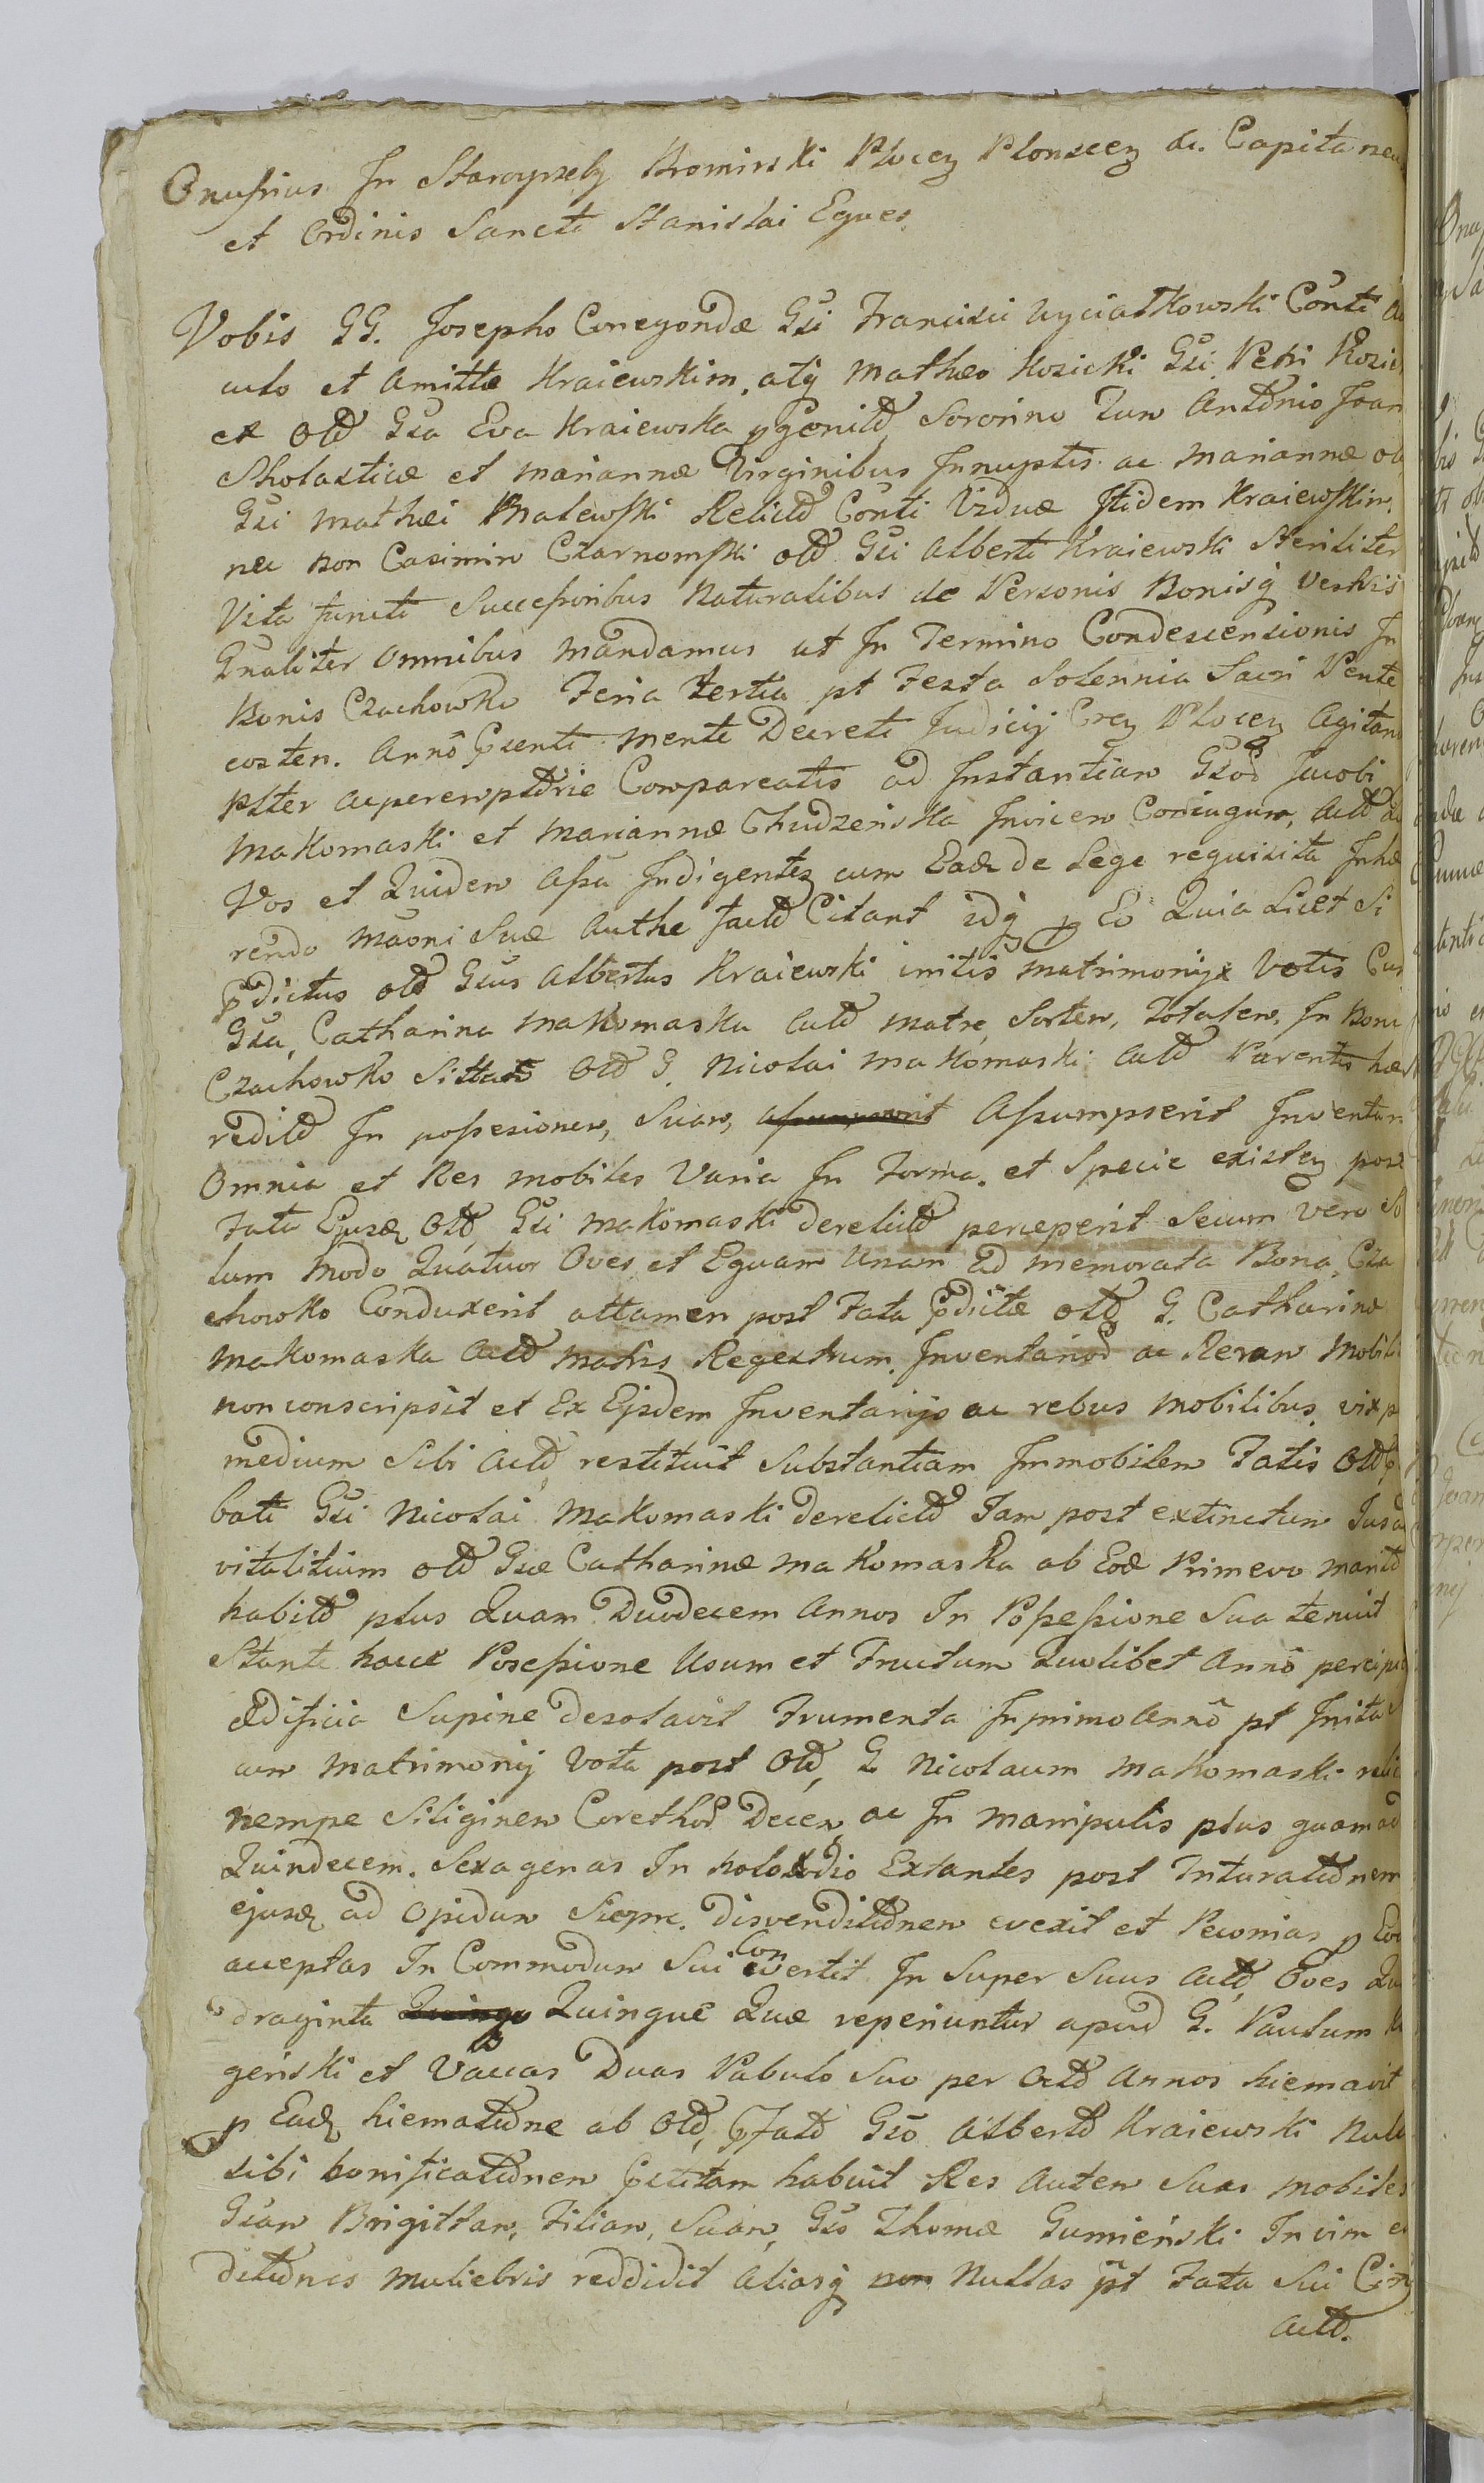 Onufrius In Staroypsely Kromirski Plocen Plonscen &c. Capitaneu
et Ordinis Sancti Stanislai Eques.
Vobis GG. Josepho Conegondæ Gsi Francisci Wyciałkowski Conti
et Amittæ Kraiewskim, atq Mathæo Kosicki Gsi Petri Kosic
ex Oltt Gsa Eva Kraiewska pgenitt Sororino Tum Anttnio Joan
Scholasticæ et Mariannæ Virginibus Innuptis ac Mariannæ
Gsi Mathæi Malewski Relictt Conti Viduæ Itidem Kraiewskim
nec non Casimiro Czarnomski oltt Gsi Alberti Kraiewski Steriliter
Vita functi Successoribus Naturalibus de Personis Bonisq Vestris
Gnaliter omnibus Mandamus ut In Termino Condescensionis In
Bonis Czachowko Feria tertia pt Festa Solennia Sacri Pente
costen. Anno psenti mente Decreti Judicij Cren Plocen Agitan
plter acperempttrie Compareatis ad Instantiam Gsod Jacobi
Makomaski et Mariannæ Chudzenska Invicem Coniugum, Actt
Vos et Quidem Assa Indigentez cum Eade de Lege requisita Inhæ
rendo Maoni Suæ Authe factt Citant idq p Eo Quia Licet
pdictus oltt Gsus Albertus Kraiewski initis Matrimonij Votis Cum
Gsa Catharina Makomaska Actt Matre, Sortem, Totalem, In Boni
Czachowko Sittam Oltt G. Nicolai Makomaski Actt Parentis hæ
reditt In possesionem, Suam, Assumpserit Inventari
Omnia et Res mobiles Varia In Forma, et Specie existen post
Fata Ejusd Oltt Gsi Makomaski Derelictt perceperit Secum Vero So
lum Modo Quatuor Oves et Equam Unam ad memorata Bona Cza
chowko Conduxerit attamen post Fata pdictæ oltt G. Catharinæ
Makomaska Actt Matris Regestrum Inventariod ac Rerum Mobili
non conscripsit et Ex Eisdem Inventarijs ac rebus Mobilibus vix
medium Sibi Actt restituit Substantiam Immobilem Fatis Oltt
bati Gsi Nicolai Makomaski Derelictt Jam post extinctum Jus
vitalitium oltt Gsæ Catharinæ Makomaska ab Eode Primevo maritt
habitt plus Quam Duodecem Annos In Possessione Sua tenuit
Stante hacce Posessione Usum et Fructum Quolibet Anno percipi
ædificia Supine Desolavit Frumenta Inprimo Anno pt Inita
cum Matrimonij Vota post Oltt G Nicolaum Makomaski
nempe Siliginem Corethod Decem ac In Manipulis plus quam ad
Quindecem Sexagenas In holododio Extantes post Trituratttnem
ejusd ad Opidum Sierpc. Disvendittttnem evexit et Pecunias p Eod
acceptas In Commodum Sui Convertit In Super Suus Actt Oves Qu
draginta Quinqu Quinque Quæ reperiuntur apud G. Paulum
genski et Vaccas Duas Pabulo Suo per Octt Annos hiemavit
p Ead hiematttne ab Oltt pfatt Gso Albertt Kraiewski Null
sibi bonificatttnem pstitam habuit Res Autem Suas mobiles
Gsam Brigittam, Filiam, Suam, Gso Thomæ Gumieński In vim
dotttnis muliebris reddidit Aliasq non Nullas pt Fata Sui
Actt.